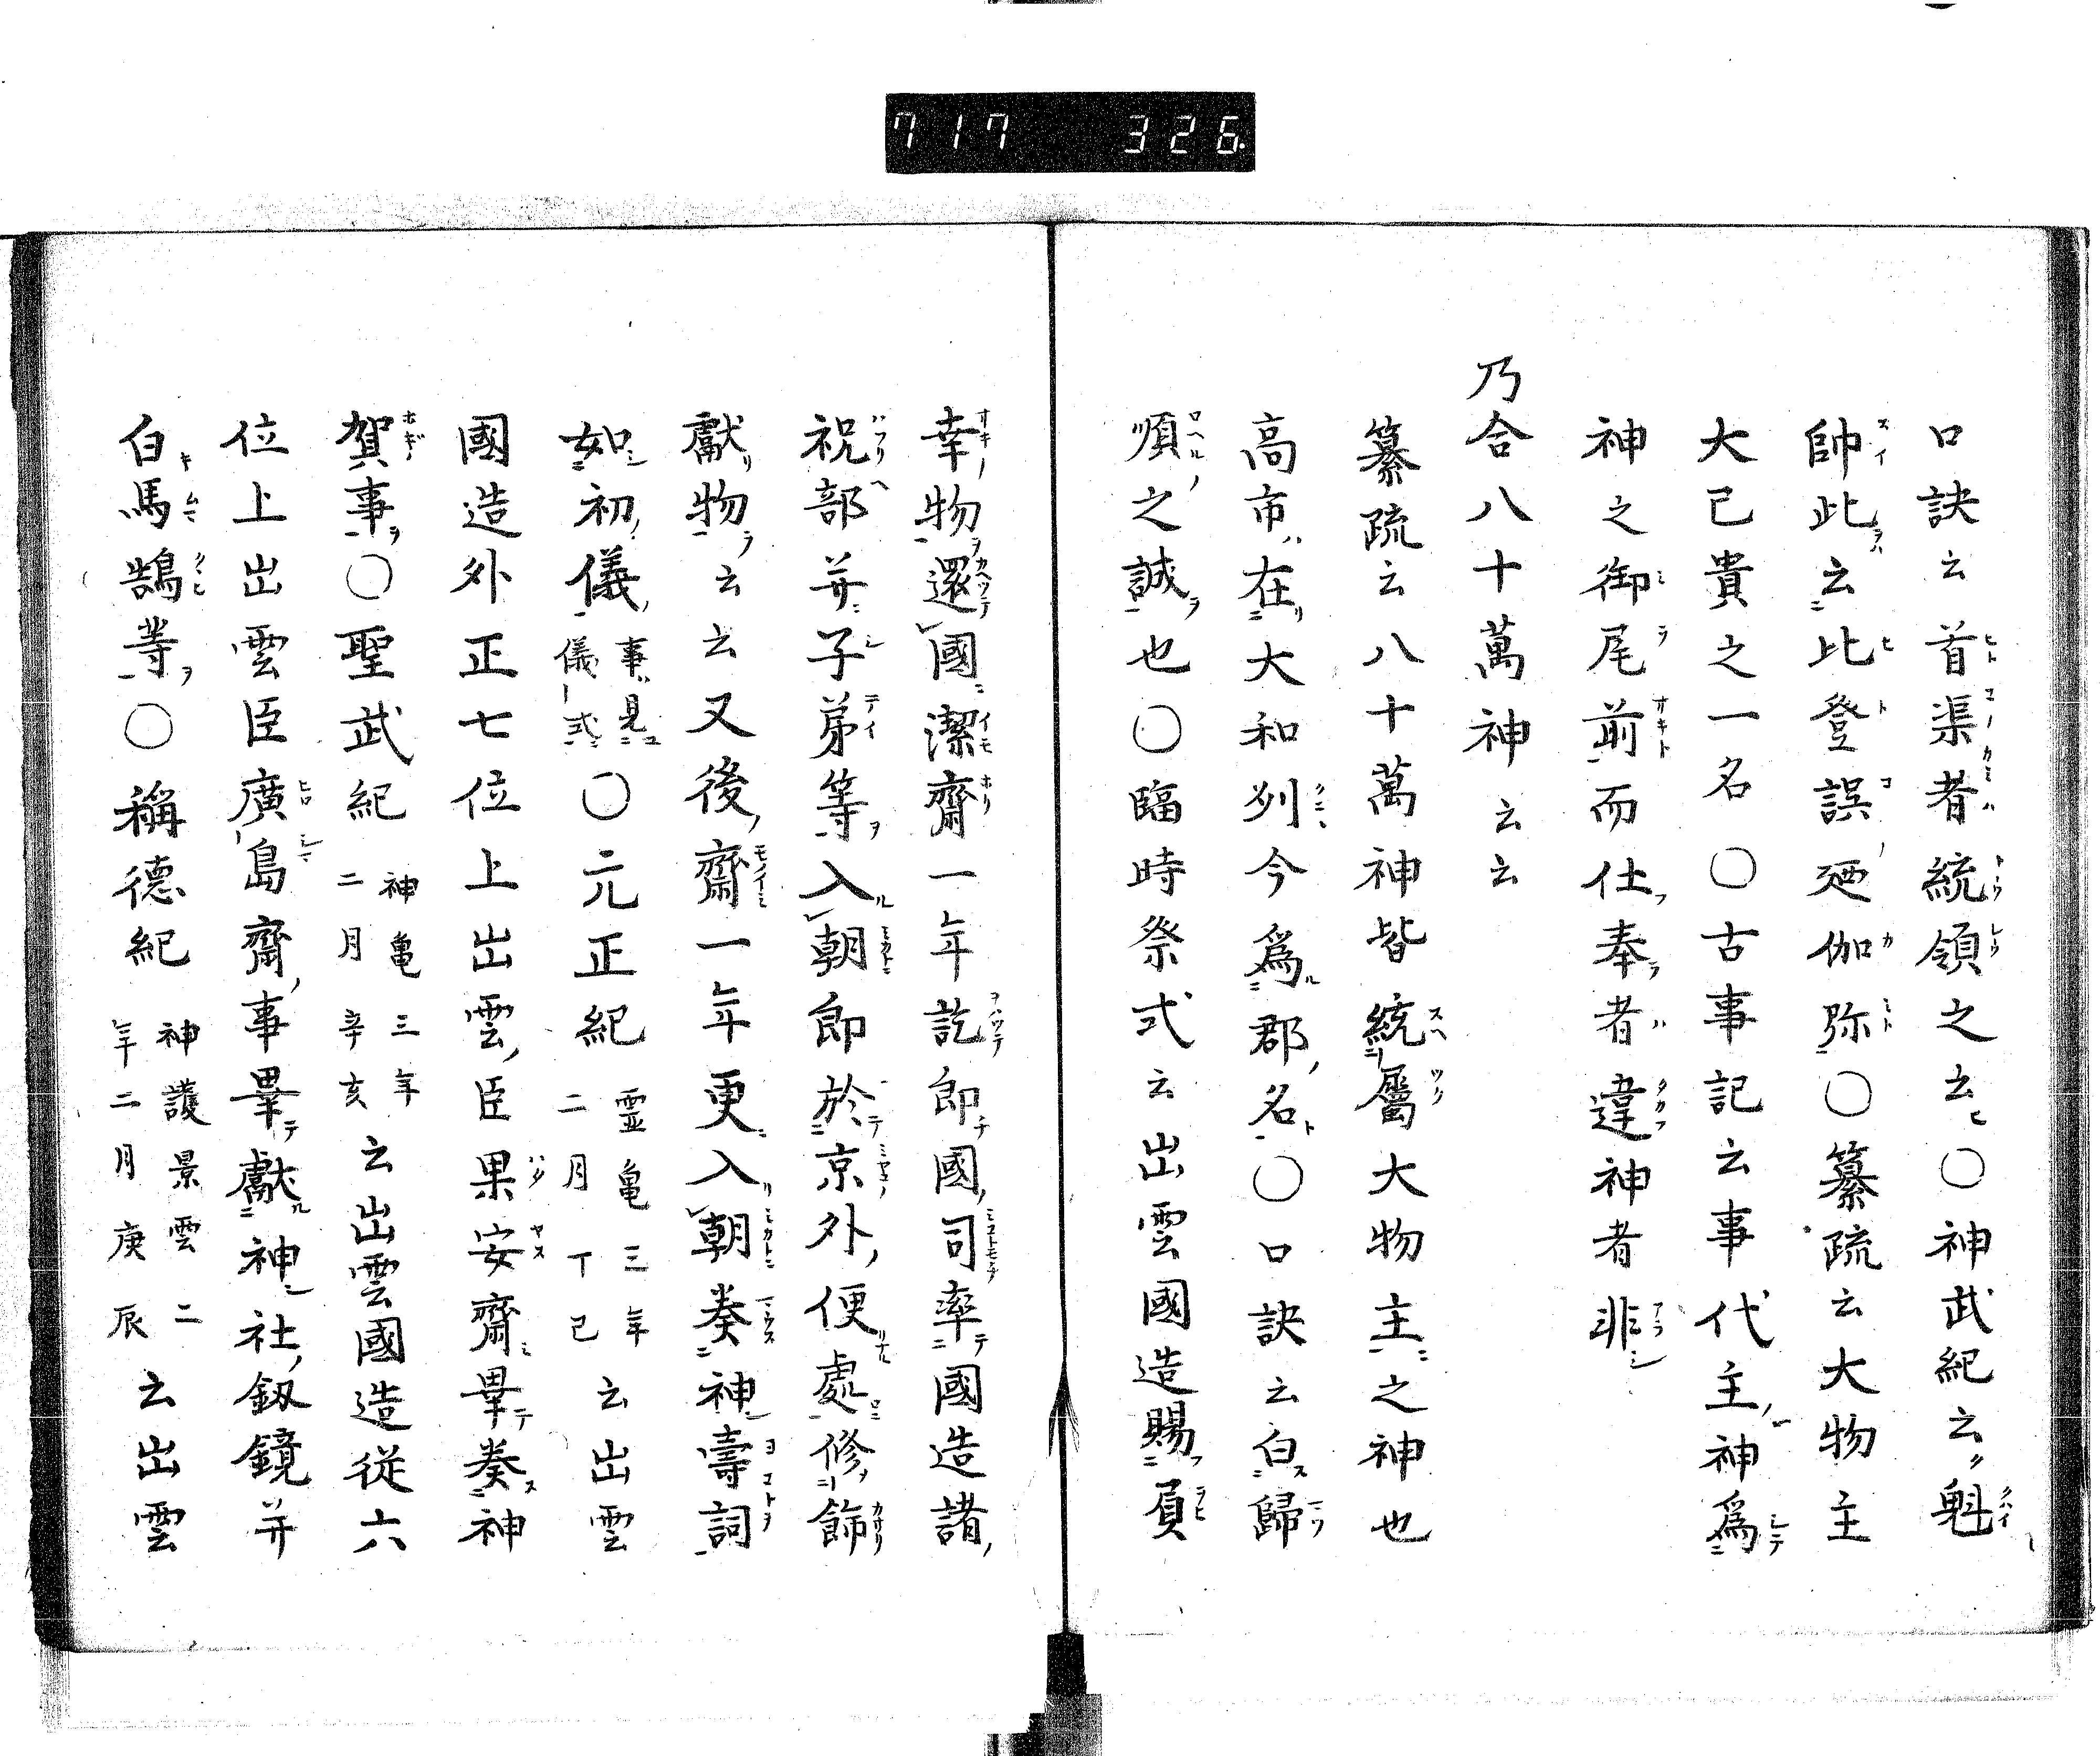 717 326
口訣云首渠者統領之云〇神武紀云魁
帥此云比登誤廼伽弥〇纂疏云大物主
大已貴之一名〇古事記云事代主神爲
神之御尾前而仕奉者違神者非
乃合八十萬神云云
纂疏云八十萬神皆統屬大物主之神也
高市在大和州今爲郡名〇口訣云白歸
順之誠也〇臨時祭式云出雲國造賜負
幸物還國潔齋一年訖即國司率國造諸
祝部并子弟等入朝即於京外便處修餝
獻物云云又後齋一年更入朝奏神壽詞
如初儀事見儀式〇元正紀霊亀三年二月丁已云出雲
國造外正七位上出雲臣果安齋畢奏神
賀事〇聖武紀神亀三年二月辛亥云出雲國造從六
位上出雲臣廣島齋事畢獻神社釼鏡并
白馬鵠等〇稱德紀神護景雲二年二月庚辰云出雲